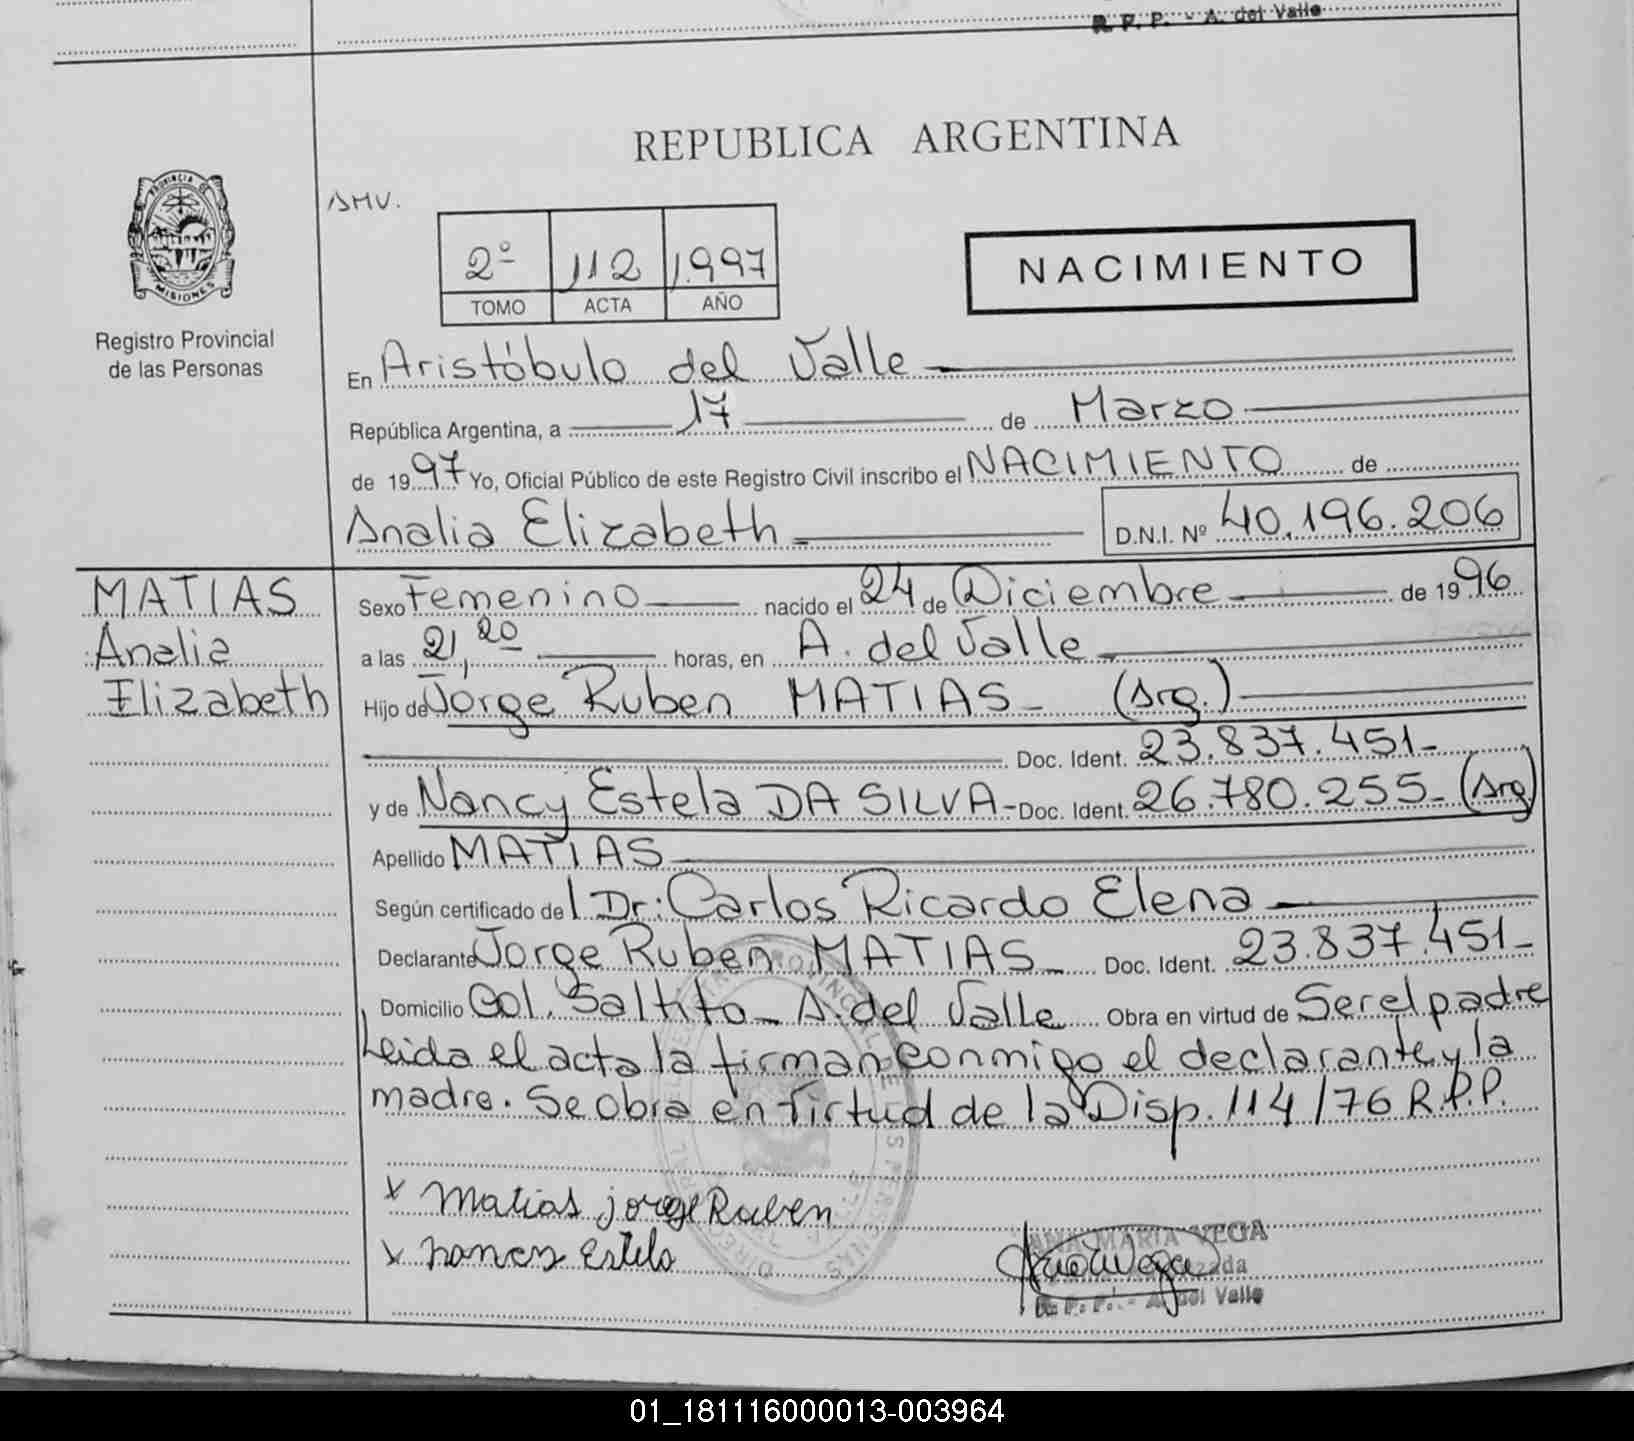 R. P. P. - A. del Valle
REPUBLICA ARGENTINA
PROVINCIA DE
MISIONES
Registro Provincial
de las Personas
AMV.
2º 112 1.997
TOMO ACTA AÑO
NACIMIENTO
En Aristóbulo del Valle
República Argentina, a 17 de Marzo
de 1997 Yo, Oficial Público de este Registro Civil inscribo el NACIMIENTO de
Analia Elizabeth D.N.I. Nº 40.196.206
MATIAS
Analia
Elizabeth
Sexo Femenino nacido el 24 de Diciembre de 1996
a las 21,20 horas, en A. del Valle
Hijo de Jorge Ruben MATIAS - (Arg.)
Doc. Ident. 23.837.451-
y de Nancy Estela DA SILVA - Doc. Ident. 26.780.255- (Arg)
Apellido MATIAS
Según certificado del Dr. Carlos Ricardo Elena
Declarante Jorge Ruben MATIAS - Doc. Ident. 23.837.451-
Domicilio Col. Saltito - A. del Valle Obra en virtud de Ser el padre
Leida el acta la firman conmigo el declarante y la
madre. Se obra en Virtud de la Disp. 114/76 R.P.P.
x Matias jorge Ruben
x nancy Estela
ANA MARIA VEGA
R. P. P. - A. del Valle
01_181116000013-003964